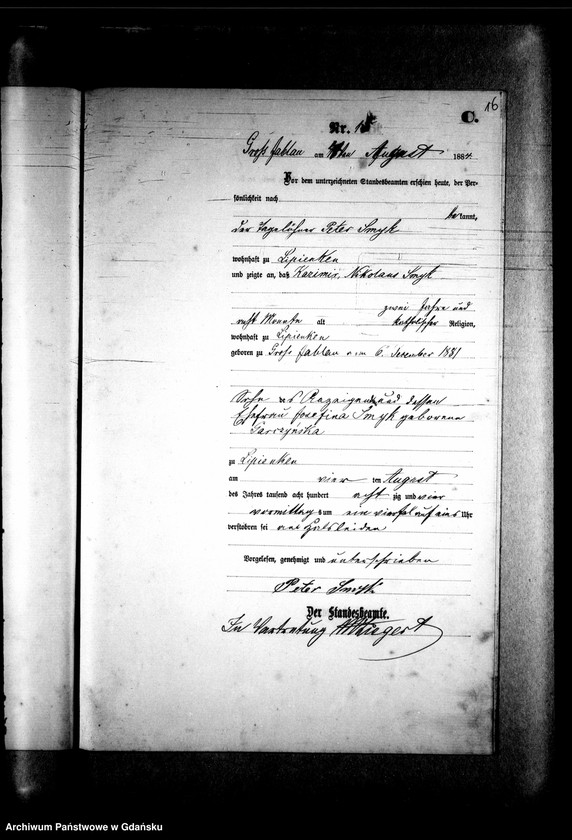 16
C.
Nr. 15
Gross Jablau am 4ten August 1884.
Vor dem unterzeichneten Standesbeamten erschien heute, der Per-
sönlichkeit nach
bekannt,
der Tagelöhner Peter Smyk
wohnhaft zu Lipienken
und zeigte an, daß Kazimir, Nikolaus Smyk
zwei Jahre und
acht Monate alt katholischer Religion,
wohnhaft zu Lipienken
geboren zu Gross Jablau am 6. Dezember 1881
Sohn des Anzeigenden und dessen
Ehefrau Josefina Smyk geborene
zu Lipienken
am vier ten August
des Jahres tausend acht hundert acht zig und vier
vormittags um ein viertel auf eins Uhr
verstorben sei an Halsleiden
Vorgelesen, genehmigt und unterschrieben
Peter Smyk
Der Standesbeamte.
In Vertretung
Archiwum Państwowe w Gdańsku